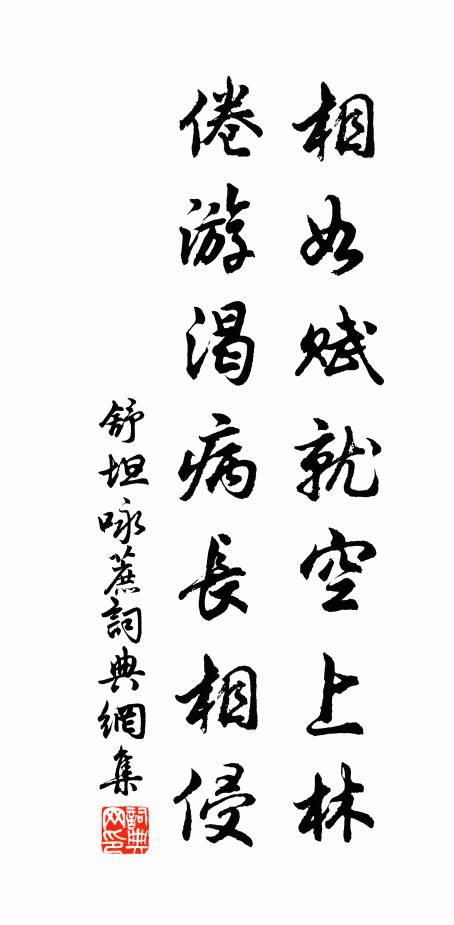 相如赋就空上林
倦游渴病長相侵
舒坦咏蔗詞典網集
詞典网印